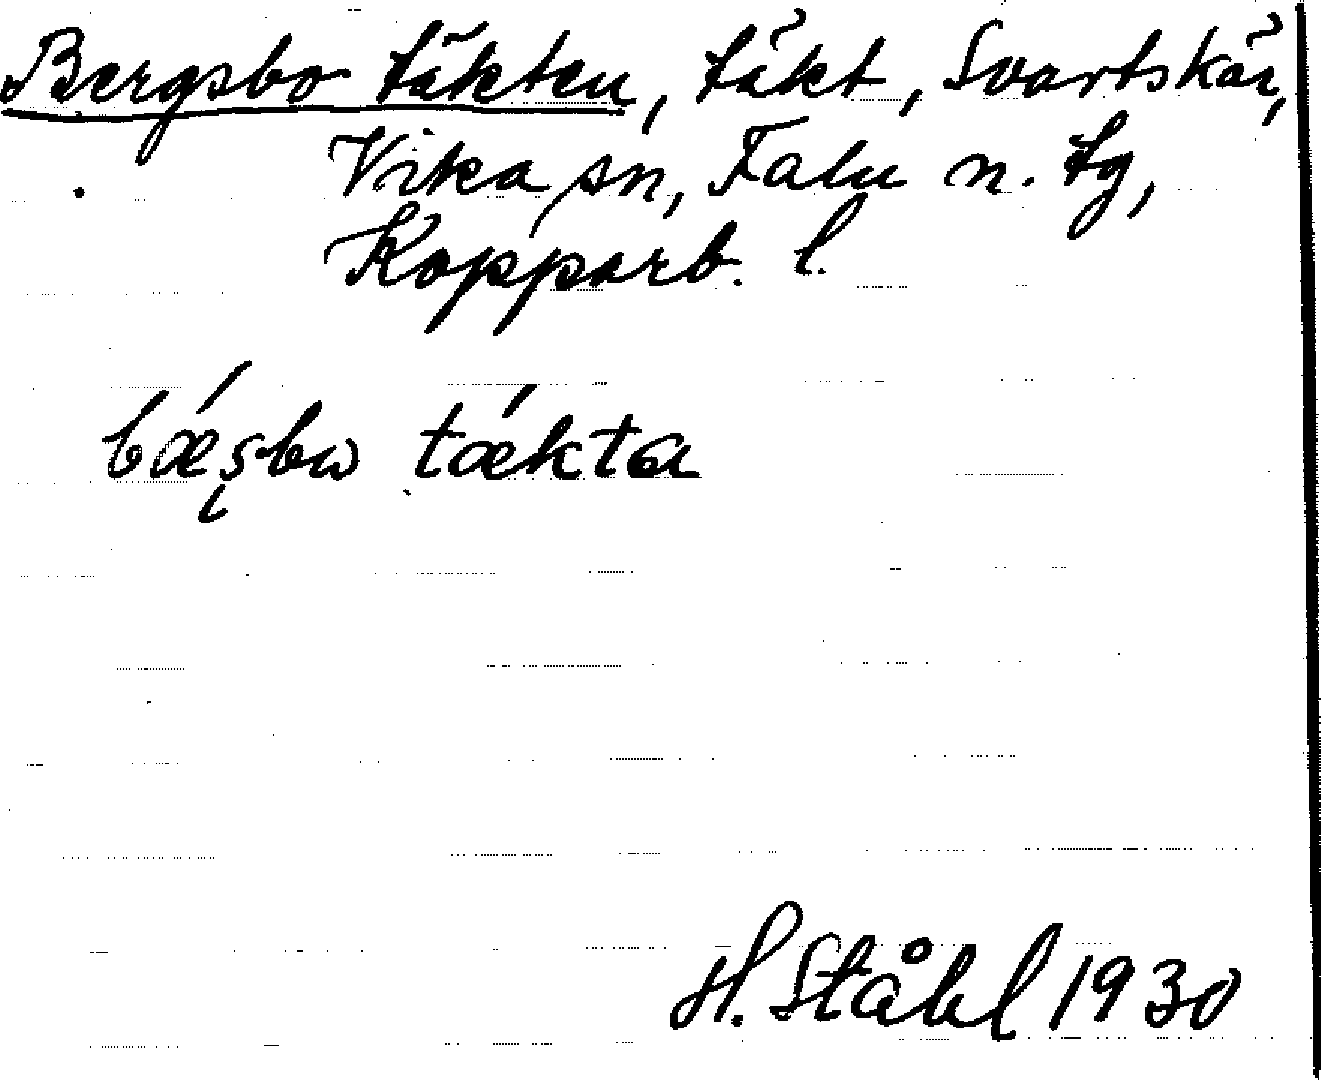 Bergsbo täkten, täkt, Svartskär,
Vika sn, Falu n. tg,
Kopparb. l.
bǽşbω tǽkta
H. Ståhl 1930